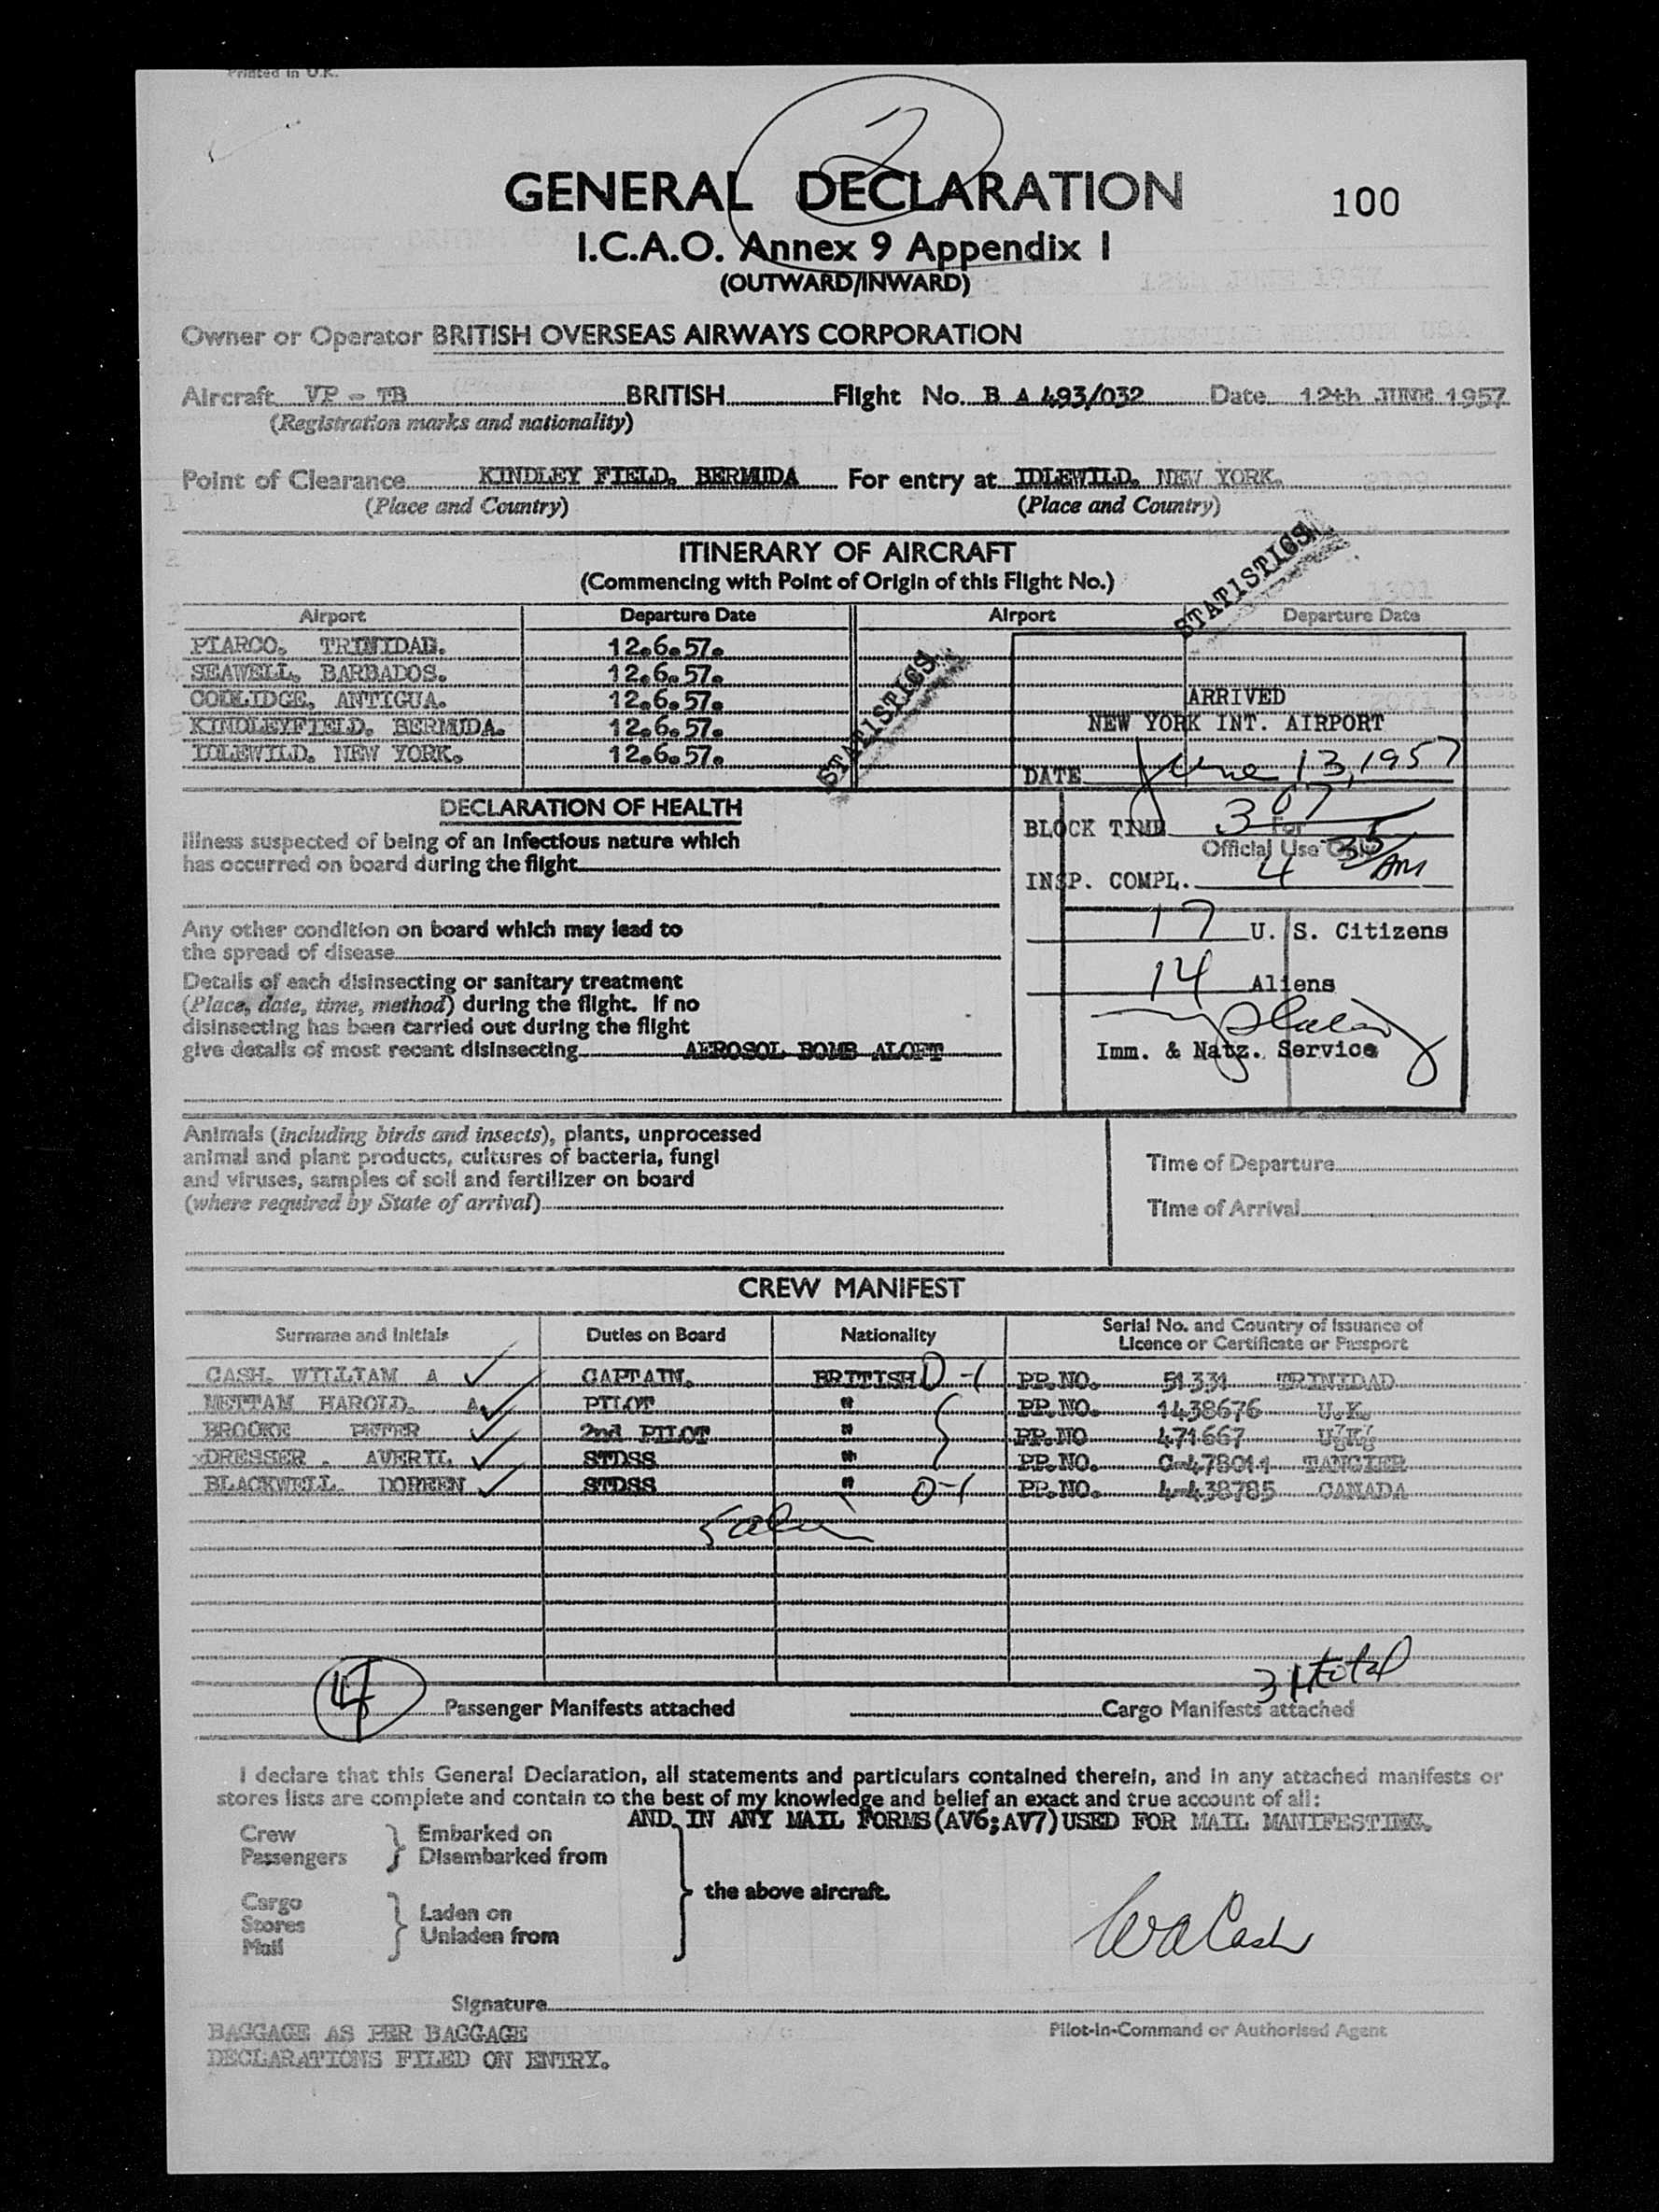 Printed in U.K.
2
GENERAL DECLARATION 100
I.C.A.O. Annex 9 Appendix I
(OUTWARD/INWARD)
Owner or Operator BRITISH OVERSEAS AIRWAYS CORPORATION
Aircraft VP - TB BRITISH Flight No. B A 493/032 Date 12th JUNE 1957
(Registration marks and nationality)
Point of Clearance KINDLEY FIELD. BERMUDA For entry at IDLEWILD. NEW YORK.
(Place and Country) (Place and Country)
ITINERARY OF AIRCRAFT
(Commencing with Point of Origin of this Flight No.)
STATISTICS
Airport Departure Date Airport Departure Date
PIARCO. TRINIDAD. 12.6.57.
SEAWELL. BARBADOS. 12.6.57.
COOLIDGE. ANTIGUA. 12.6.57.
KINDLEYFIELD. BERMUDA. 12.6.57.
IDLEWILD. NEW YORK. 12.6.57.
STATISTICS
ARRIVED
NEW YORK INT. AIRPORT
DATE June 13, 1957
BLOCK TIME 3 07
For
Official Use Only
INSP. COMPL. 4 35 AM
17 U. S. Citizens
14 Aliens
Imm. & Natz. Service
DECLARATION OF HEALTH
Illness suspected of being of an infectious nature which
has occurred on board during the flight
Any other condition on board which may lead to
the spread of disease
Details of each disinsecting or sanitary treatment
(Place, date, time, method) during the flight. If no
disinsecting has been carried out during the flight
give details of most recent disinsecting AEROSOL BOMB ALOFT
Animals (including birds and insects), plants, unprocessed
animal and plant products, cultures of bacteria, fungi
and viruses, samples of soil and fertilizer on board
(where required by State of arrival)
Time of Departure
Time of Arrival
CREW MANIFEST
Surname and Initials Duties on Board Nationality Serial No. and Country of Issuance of
Licence or Certificate or Passport
CASH. WILLIAM A CAPTAIN. BRITISH D-1 PP.NO. 51331 TRINIDAD
METTAM HAROLD. A. PILOT " PP.NO. 1438676 U.K.
BROOKE PETER 2nd PILOT " PP.NO 471667 U.K.
DRESSER . AVERIL STDSS " PP.NO. C-478011 TANGIER
BLACKWELL. DOREEN STDSS " D-1 PP.NO. 4-438785 CANADA
4 Passenger Manifests attached Cargo Manifests attached
31 total
I declare that this General Declaration, all statements and particulars contained therein, and in any attached manifests or
stores lists are complete and contain to the best of my knowledge and belief an exact and true account of all:
AND. IN ANY MAIL FORMS(AV6;AV7)USED FOR MAIL MANIFESTING.
Crew Embarked on
Passengers Disembarked from
the above aircraft.
Cargo
Stores Laden on
Mail Unladen from
WA Cash
Signature
Pilot-in-Command or Authorised Agent
BAGGAGE AS PER BAGGAGE
DECLARATIONS FILED ON ENTRY.